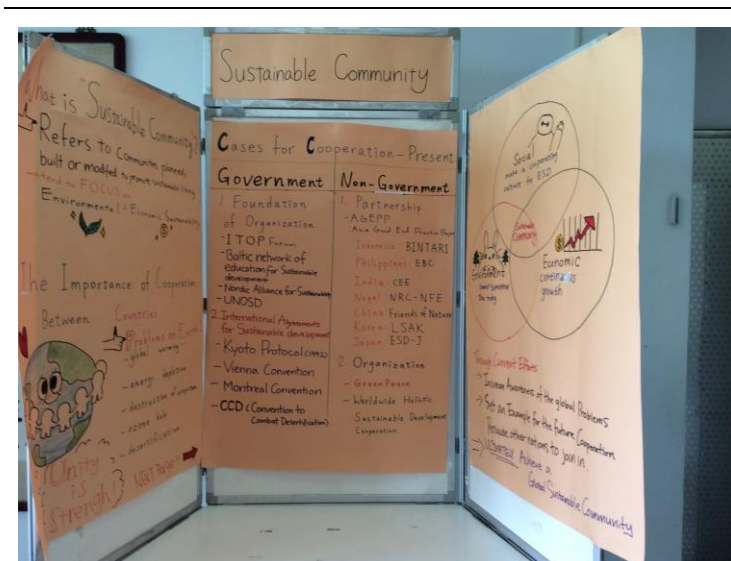 Sustainable Community
What is "Sustainable Community"?
Refers to Communities planned,
built or modified to promote sustainable living
tend to FOCUS on
Environmental + Economic Sustainability
The Importance of Cooperation
Between Countries
Problems on Earth
- global warming
- energy depletion
- destruction of ecosystem
- ozone hole
- desertification
"Unity
is
Strength"
Next Page
Cases for Cooperation - Present
Government
1. Foundation
of Organization
- ITOP Forum
- Baltic network of
education for Sustainable
development
- Nordic Alliance for Sustainability
- UNOSD
2. International Agreements
for Sustainable development
- Kyoto Protocol
- Vienna Convention
- Montreal Convention
- CCD (Convention to
Combat Desertification)
Non-Government
1. Partnership
- AGEPP
Asia Good ESD Practice Project
Indonesia: BINTARI
Philippines: EBC
India: CEE
Nepal NRC-NFE
China Friends of Nature
Korea: LSAK
Japan: ESD-J
2. Organization
- GreenPeace
- Worldwide Holistic
Sustainable Development
Cooperation
Social
make a cooperating
culture for ESD
Sustainable
Community
Environment
Economic
continuous
growth
Through Current Efforts
→ Increase Awareness of the global Problems
→ Set an Example for the future Cooperation
Persuade other nations to join in.
⇒ ULTIMATELY Achieve a
Global Sustainable Community